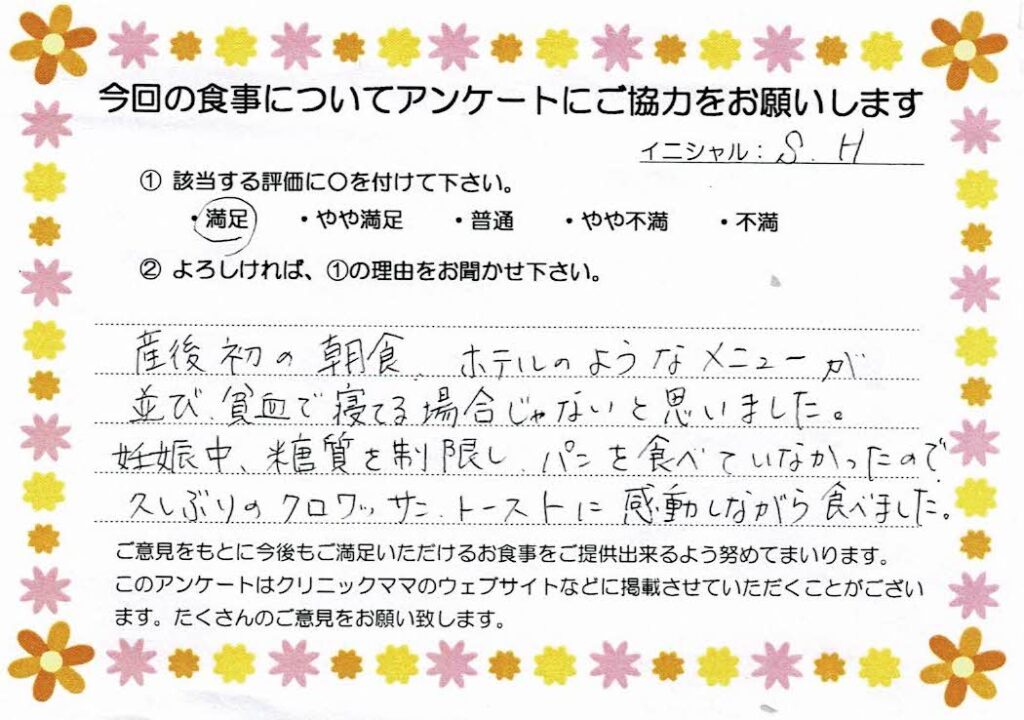 今回の食事についてアンケートにご協力をお願いします
イニシャル：S. H
① 該当する評価に〇を付けて下さい。
・満足 ・やや満足 ・普通 ・やや不満 ・不満
② よろしければ、①の理由をお聞かせ下さい。
産後初の朝食、ホテルのようなメニューが
並び、貧血で寝てる場合じゃないと思いました。
妊娠中、糖質を制限し、パンを食べていなかったので、
久しぶりのクロワッサン、トーストに感動しながら食べました。
ご意見をもとに今後もご満足いただけるお食事をご提供出来るよう努めてまいります。
このアンケートはクリニックママのウェブサイトなどに掲載させていただくことがござい
ます。たくさんのご意見をお願い致します。